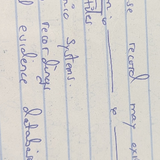 se record may exis
files
nic systems.
recordings
l evidence database